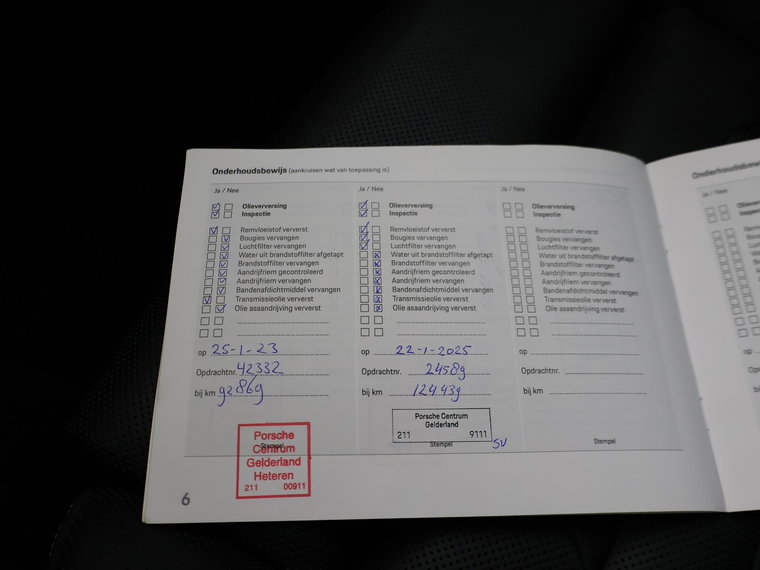 Onderhoudsbewijs (aankruisen wat van toepassing is)
Ja / Nee
Olieverversing
Inspectie
Remvloeistof ververst
Bougies vervangen
Luchtfilter vervangen
Water uit brandstoffilter afgetapt
Brandstoffilter vervangen
Aandrijfriem gecontroleerd
Aandrijfriem vervangen
Bandenafdichtmiddel vervangen
Transmissieolie ververst
Olie asaandrijving ververst
op 25-1-23
Opdrachtnr. 42332
bij km 92869
Stempel
Porsche
Centrum
Gelderland
Heteren
211 00911
6
Ja / Nee
Olieverversing
Inspectie
Remvloeistof ververst
Bougies vervangen
Luchtfilter vervangen
Water uit brandstoffilter afgetapt
Brandstoffilter vervangen
Aandrijfriem gecontroleerd
Aandrijfriem vervangen
Bandenafdichtmiddel vervangen
Transmissieolie ververst
Olie asaandrijving ververst
op 22-1-2025
Opdrachtnr. 24589
bij km 124439
Porsche Centrum
Gelderland
211 9111
Stempel
SV
Ja / Nee
Olieverversing
Inspectie
Remvloeistof ververst
Bougies vervangen
Luchtfilter vervangen
Water uit brandstoffilter afgetapt
Brandstoffilter vervangen
Aandrijfriem gecontroleerd
Aandrijfriem vervangen
Bandenafdichtmiddel vervangen
Transmissieolie ververst
Olie asaandrijving ververst
op
Opdrachtnr.
bij km
Stempel
Ja / Nee